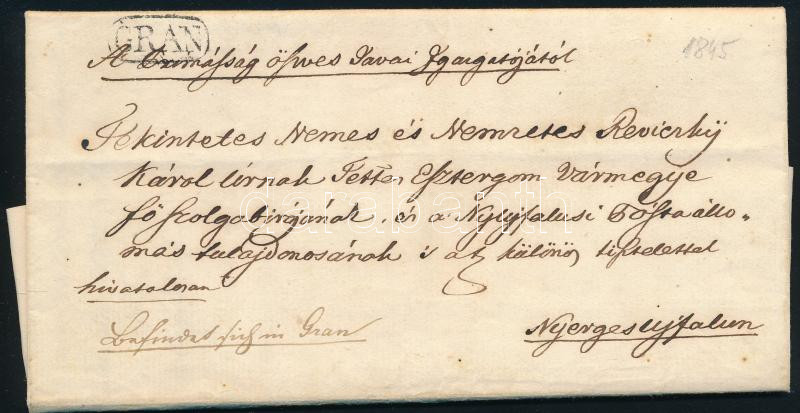 GRAN
1845
A Primásság öszves Javai Igazgatójától
Tekintetes Nemes és Nemzetes Reviczky
Károl Úrnak Tette, Esztergom Vármegye
fő Szolgabirájának, és a Nyujfalusi Póstaállo=
más tulajdonosának is a
különös tisztelettel
hivatalosan
Befindet sich in Gran
Nyergesujfalun
darabanth